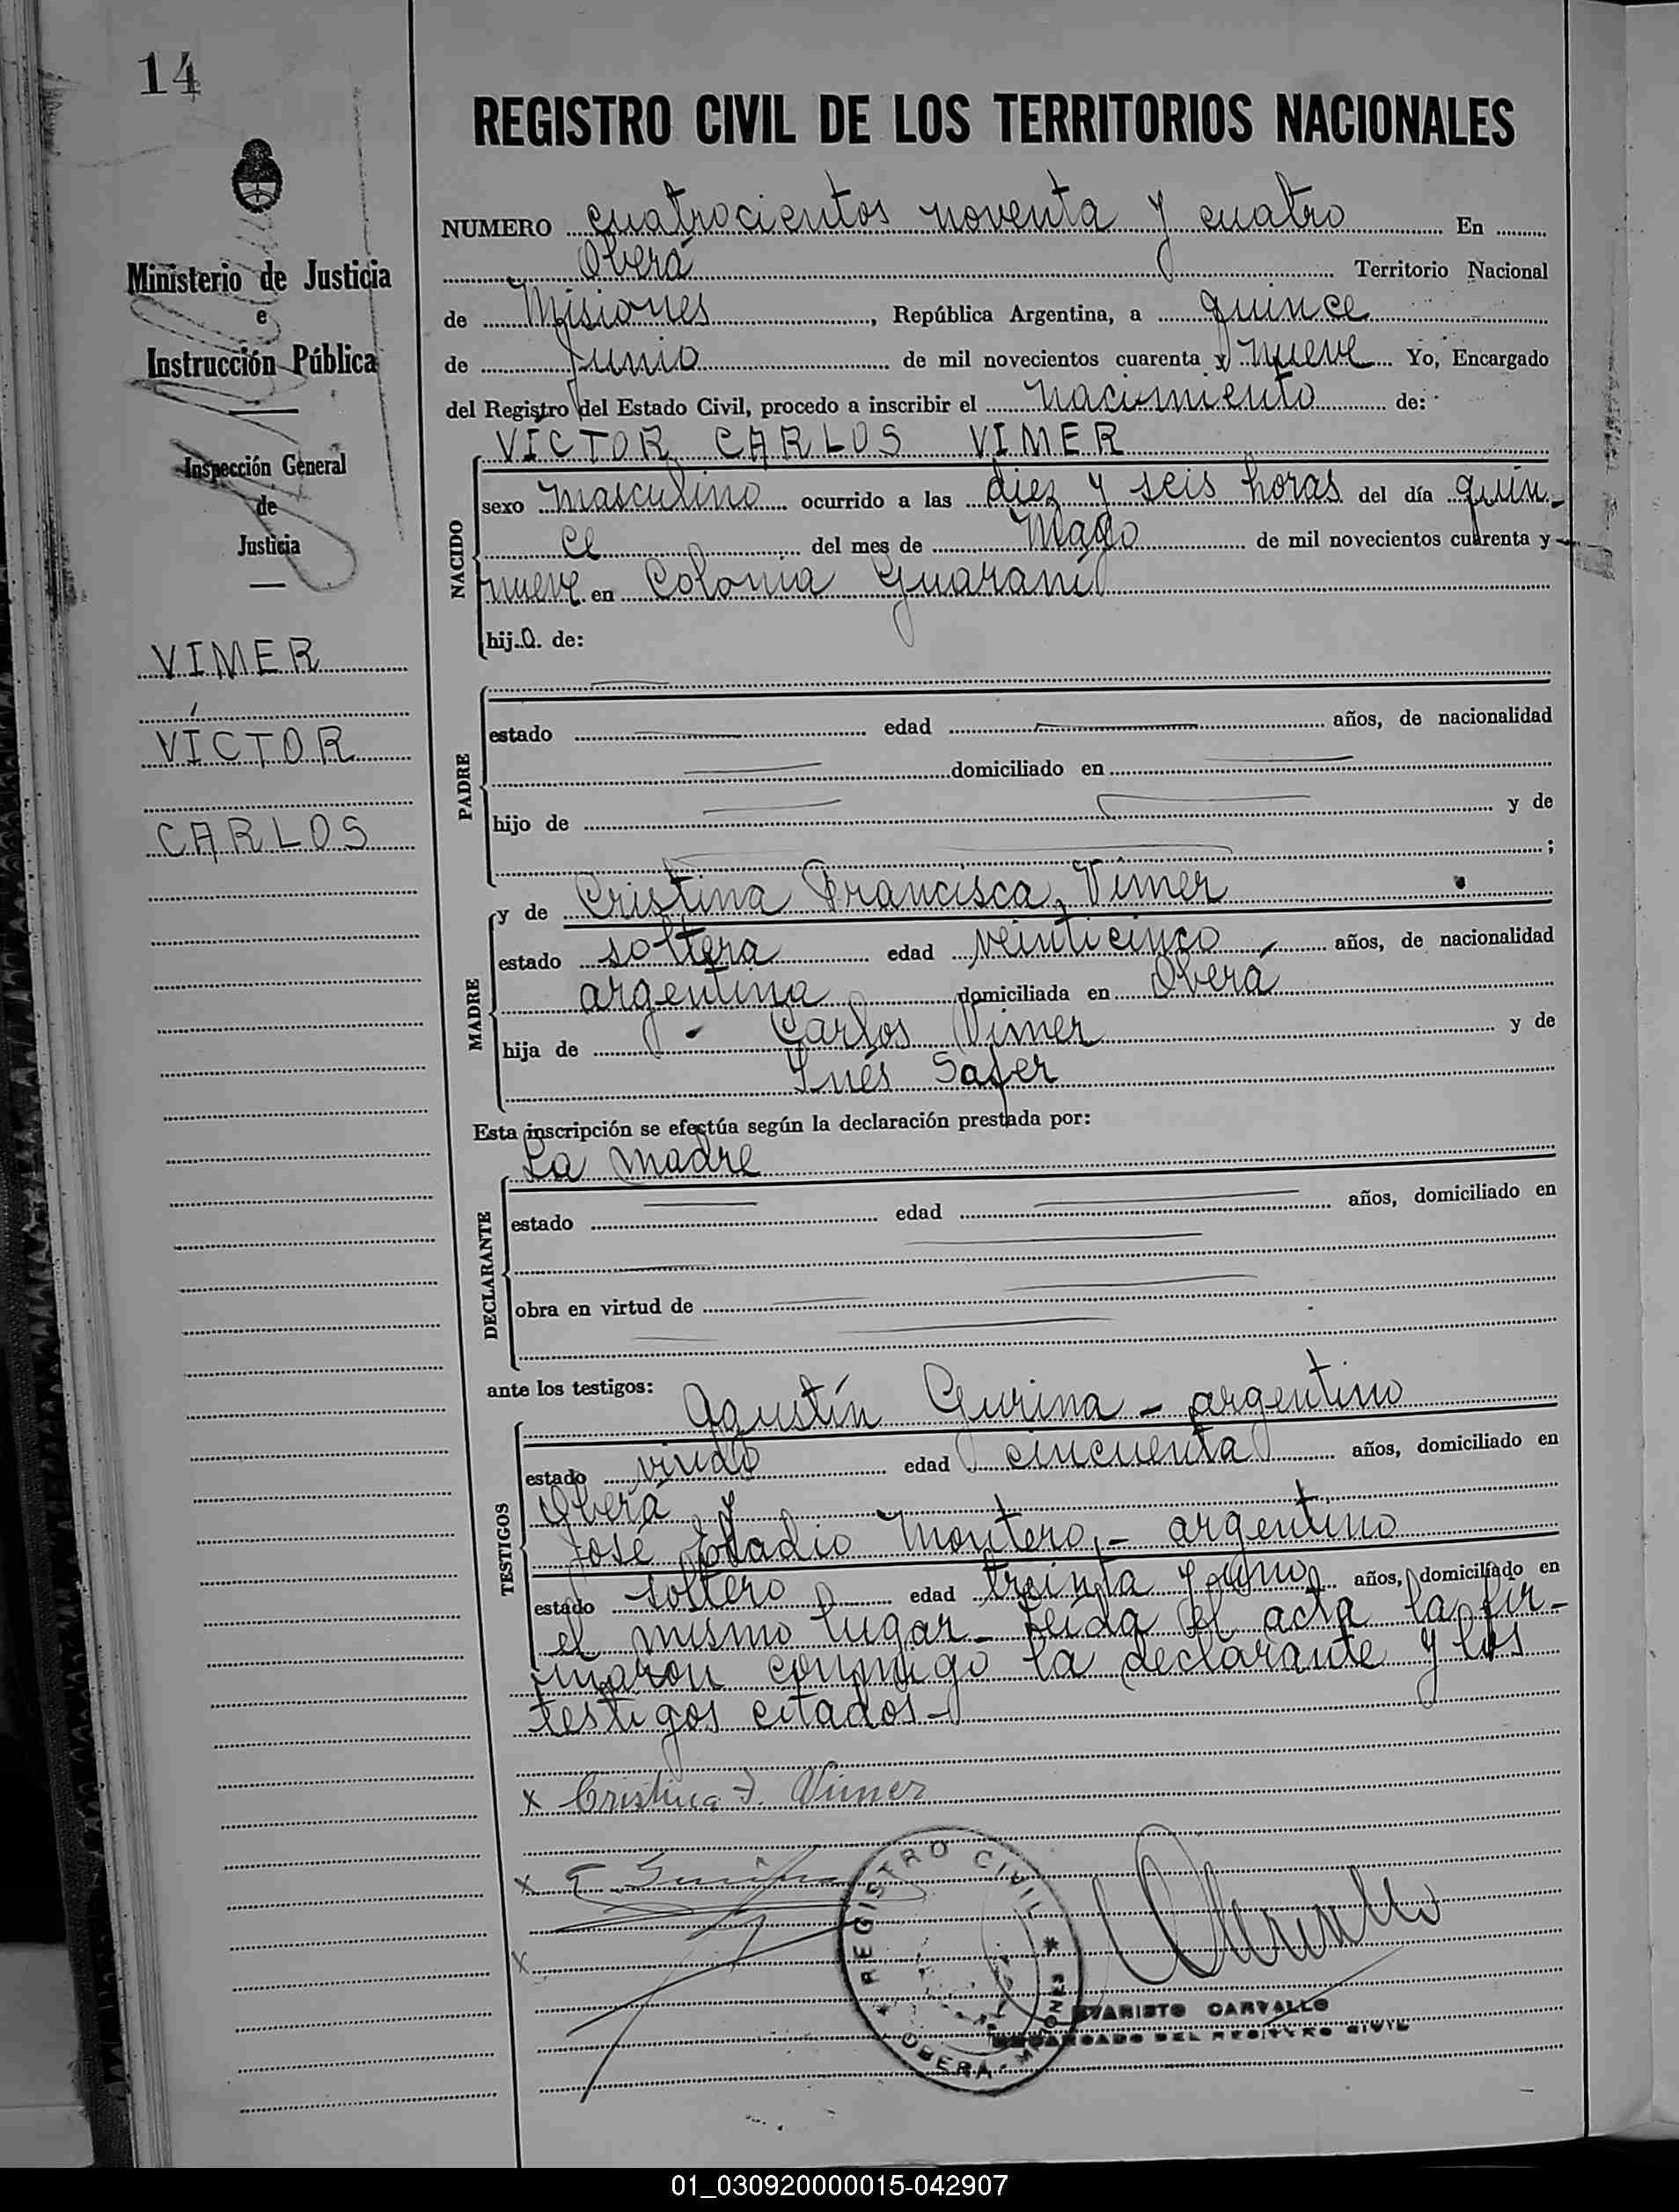 14
REGISTRO CIVIL DE LOS TERRITORIOS NACIONALES
Ministerio de Justicia
e
Instrucción Pública
Inspección General
de
Justicia
VIMER
VÍCTOR
CARLOS
NUMERO cuatrocientos noventa y cuatro En
Oberá Territorio Nacional
de Misiones, República Argentina, a quince
de Junio de mil novecientos cuarenta y nueve Yo, Encargado
del Registro del Estado Civil, procedo a inscribir el nacimiento de:
VICTOR CARLOS VIMER
NACIDO
sexo masculino ocurrido a las diez y seis horas del día quin-
ce del mes de Mayo de mil novecientos cuarenta y
nueve en Colonia Guaraní
hijo de:
PADRE
estado edad años, de nacionalidad
domiciliado en
hijo de y de
;
MADRE
y de Cristina Francisca Vimer
estado soltera edad veinticinco años, de nacionalidad
argentina domiciliada en Oberá
hija de Carlos Vimer y de
Inés Safer
Esta inscripción se efectúa según la declaración prestada por:
La madre
DECLARANTE
estado edad años, domiciliado en
obra en virtud de
ante los testigos:
TESTIGOS
Agustín Gurina - argentino
estado viudo edad cincuenta años, domiciliado en
Oberá y
José Eladio Montero, - argentino
estado soltero edad treinta y uno años, domiciliado en
el mismo lugar - Leída el acta la fir-
maron conmigo la declarante y los
testigos citados -
x Cristina F. Vimer
x
x
REGISTRO CIVIL
OBERA - MISIONES
EVARISTO CARVALLO
ENCARGADO DEL REGISTRO CIVIL
01_030920000015-042907